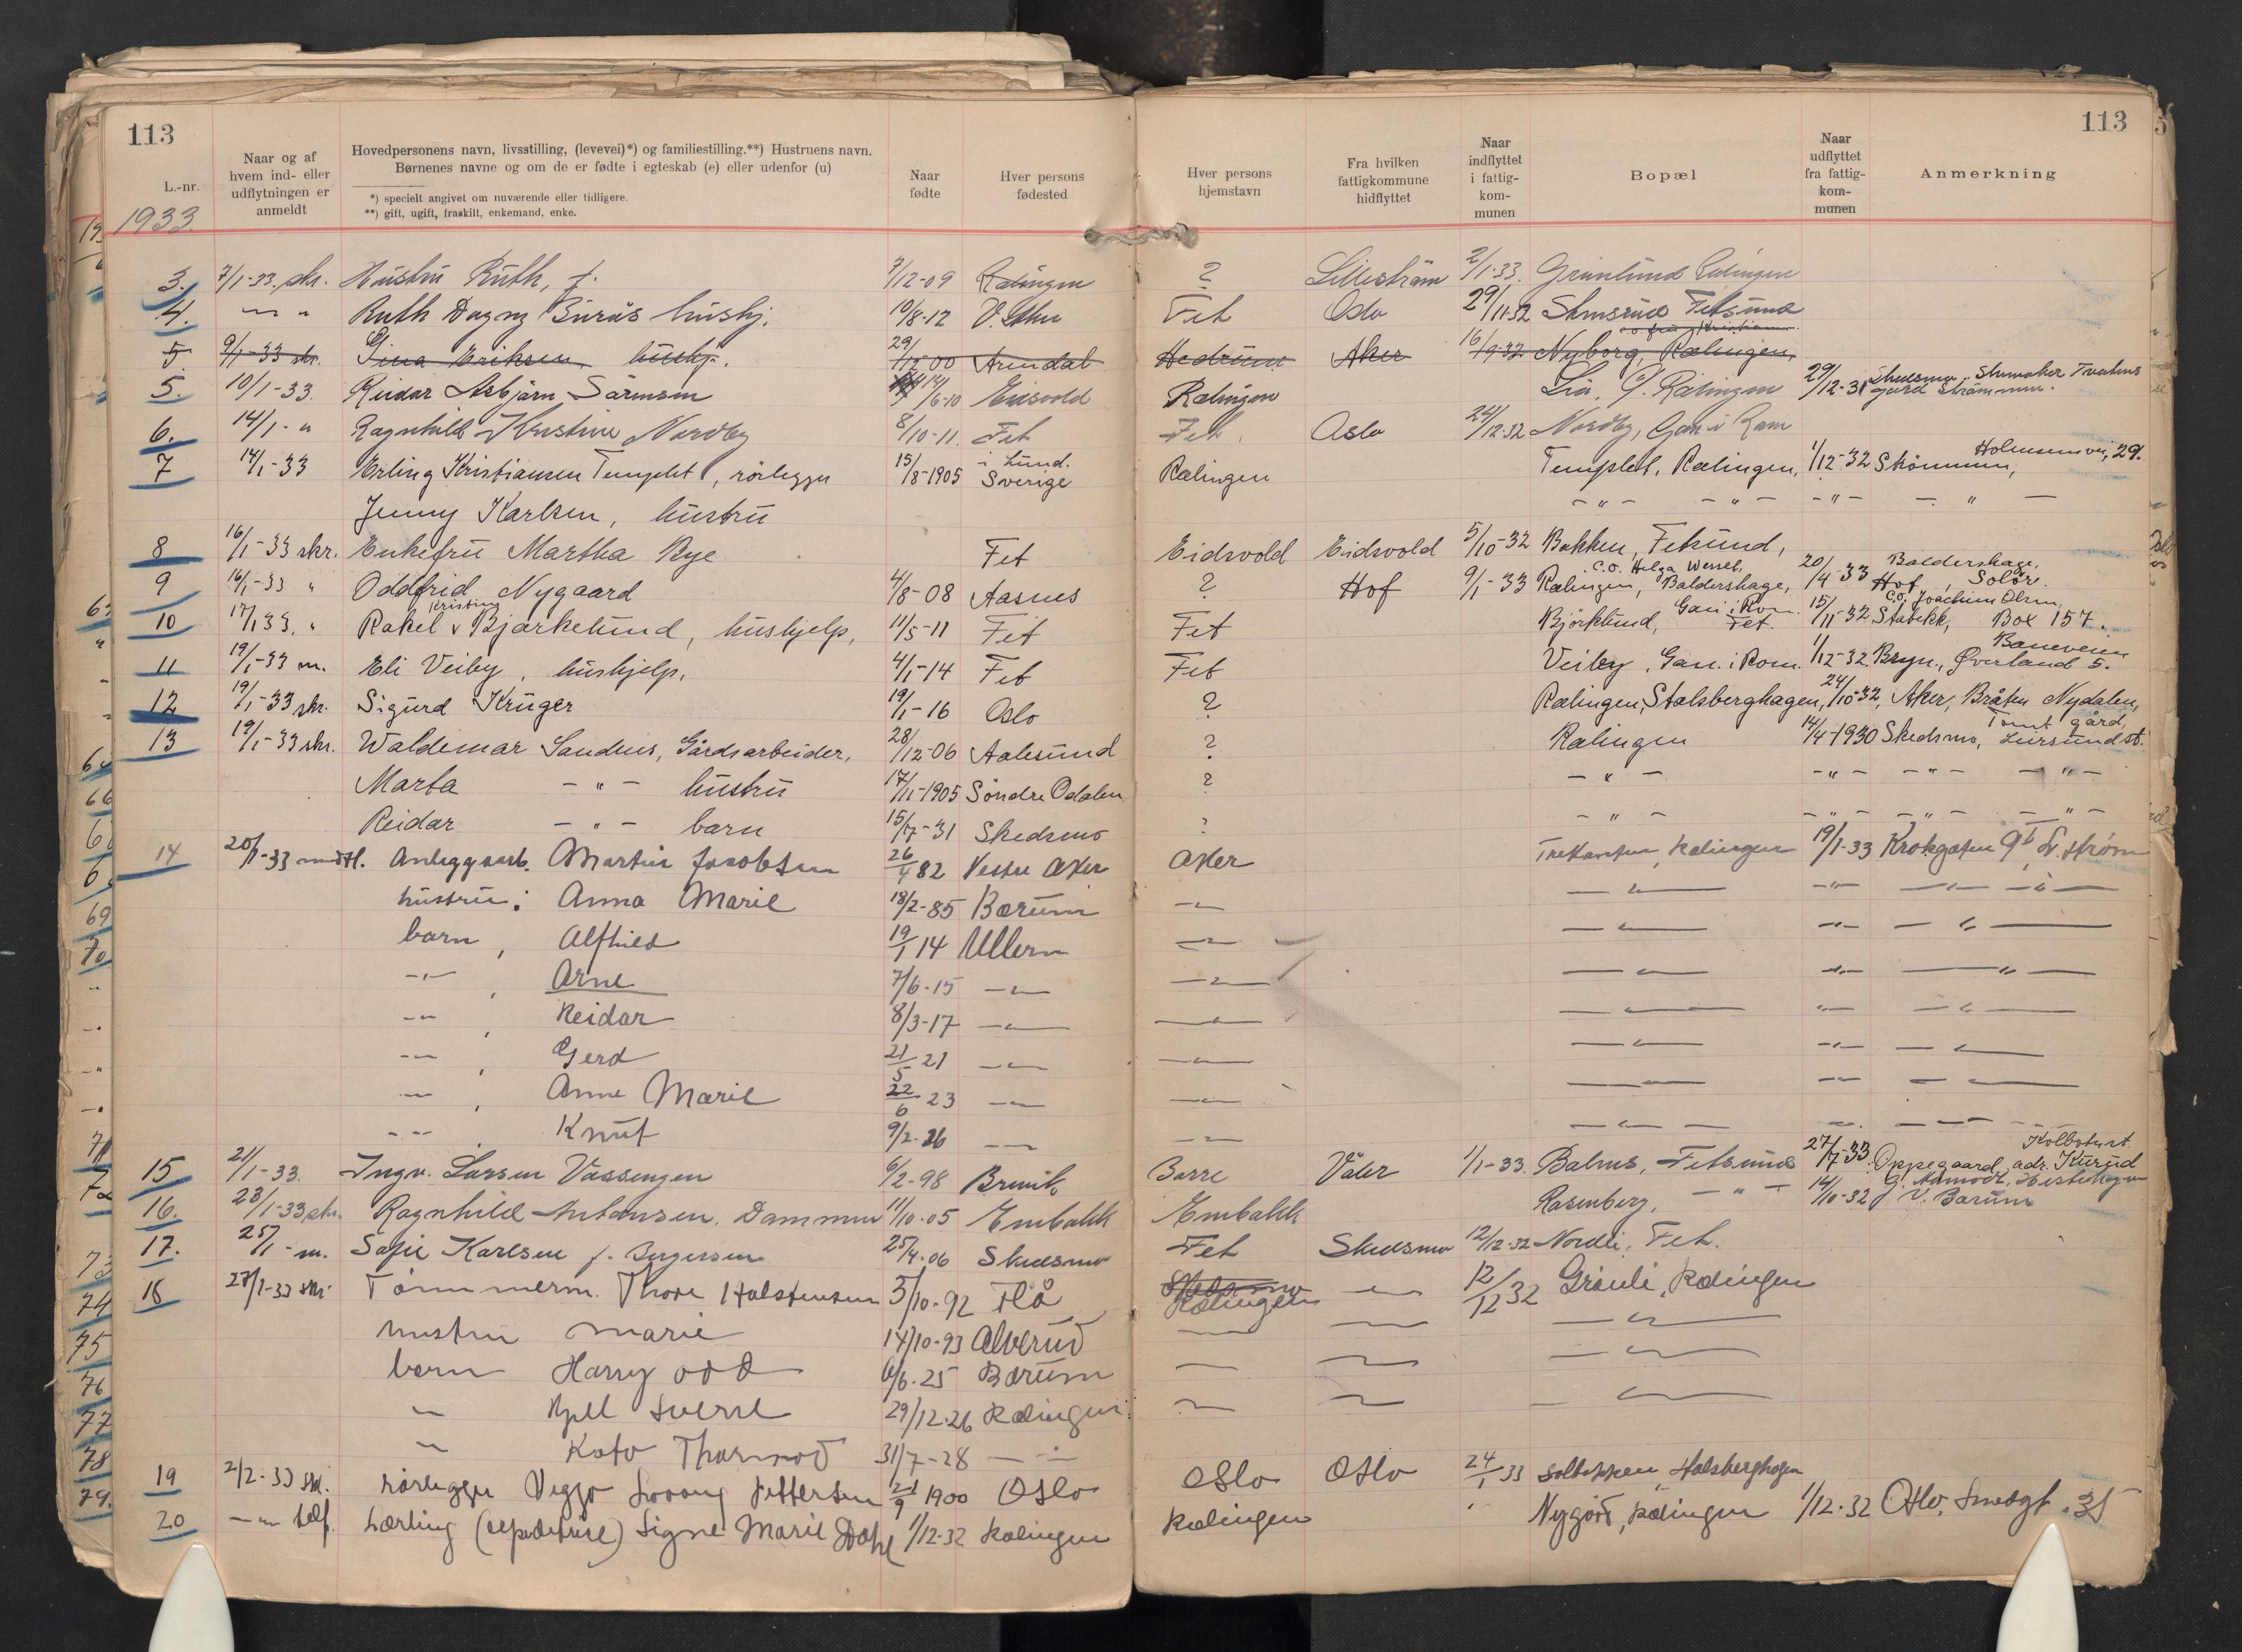 113
113
L.-nr.
Naar og af hvem ind- eller udflytningen er anmeldt
Hovedpersonens navn, livsstilling, (levevei)*) og familiestilling.**) Hustruens navn. Børnenes navne og om de er fødte i egteskab (e) eller udenfor (u)
*) specielt angivet om nuværende eller tidligere.
**) gift, ugift, fraskilt, enkemand, enke.
Naar fødte
Hver persons fødested
Hver persons hjemstavn
Fra hvilken fattigkommune hidflyttet
Naar indflyttet i fattig-kom-munen
Bopæl
Naar udflyttet fra fattig-kom-munen
Anmerkning
1933.
3. 7/1-33. skr. Hustru Ruth, f. 3/12-09 Rælingen ? Lilleström 2/1-33. Grönlund Rælingen
4. — " Ruth Dagny Burås hushj. 10/8-12 Fet Oslo 29/11-32 Fetsund
5. 9/1-33 skr. Gina Eriksen hushj. 29/12-00 Arendal Hedrum Aker 16/9-32 Nyborg, Rælingen,
5. 10/1-33. Reidar Asbjørn Sörensen 14/6-10 Eidsvold Rælingen Lia, Rælingen 29/12-31 Skedsmo
6. 14/1- " Ragnhild Kristine Nordby 8/10-11. Fet Fet. Oslo 24/12-32 Nordby, Gan i Rom
7 14/1-33 Erling Kristiansen Templet, rörlegger 15/8-1905 i Lund. Sverige Rælingen Templet, Rælingen, 1/12-32 Strömmen, Holmsensvei, 29.
Jenny Karlsen, hustru - " - - " - - " - - " -
8 16/1-33 skr. Enkefru Martha Bye Fet Eidsvold Eidsvold 5/10-32 Bakken, Fetsund,
9 16/1-33 " Oddfrid Nygaard 4/8-08 Aasnes ? Hof 9/1-33 c.o. Helga Wessel, Rælingen, Baldershage, 20/4-33 Baldershage, Hof, Solör.
10 17/1 33. " Rakel Kristine Bjørkelund, hushjelp, 11/5-11 Fet Fet Björklund, Gan i Rom. Fet. 15/11-32 c.o. Joachim Olsen, Stabekk, Box 157.
11 19/1-33 m. Eli Veiby, hushjelp, 4/1-14 Fet Fet Veiby, Gan i Rom. 1/12-32. Bryn, Øverland 5. Baneveien
12 19/1-33 skr. Sigurd Krüger 19/1-16 Oslo ? Rælingen, Stalsberghagen, 24/10-32, Aker, Bråten Nydalen,
13 19/1-33 skr. Waldemar Sandnes, Gårdsarbeider, 28/12-06 Aalesund ? Rælingen 14/4-1930 Skedsmo, Tomt gård, Leirsund st.
Marta - " - hustru 17/11-1905 Söndre Odalen ? - " - - " - - " - - " -
Reidar - " - barn 15/7-31 Skedsmo ? - " - - " - - " - - " -
14 20/1-33 mdtl. Anleggsarb. Martin Jacobsen 26/4 82 Vestre Aker Aker Trekanten, Rælingen 19/1-33 Krokgaten 9b, L.strøm
hustru: Anna Marie 18/2-85 Bærum — " —
barn, Alfhild 19/1 14 Ullern — " —
— " — , Arne 7/6-15 — " —
— " — , Reidar 8/3-17 — " —
— " — , Gerd 21/5 21 — " —
— " — , Anne Marie 22/6 23 — " —
— " — , Knut 9/2-26 — " —
15 21/1-33. Ingv. Larsen Vassengen 6/2-98 Brevik Borre Våler 1/1-33. Balnes, Fetsund 27/7-33 Oppegaard, adr. Kurud Kolbotn st
16. 23/1-33 skr. Ragnhild Antonsen. Dammen 11/10-05 Enebakk Enebakk Rosenberg, - " - 14/10-32 V. Bærum
17. 25/1- m. Sofie Karlsen f. Bergersen 25/4-06 Skedsmo Fet Skedsmo 12/12-32 Nordli, Fet.
18 27/1-33 skr Tömmerm. Thore Halstensen 5/10-92 Flå Skedsmo Rælingen — " — 12/12 32 Grönli, Rælingen
hustru Marie 14/10-93 Ålverud — " —
barn Harry Odd 6/6-25 Bærum — " —
— " — Kjell Sverre 29/12-26 Rælingen — " —
— " — Kato Thormod 31/7-28 — " —
19 2/2-33 skr. rörlegger Viggo Pettersen 21/9 1900 Oslo Oslo Oslo 24/1 33 Solbakken, Stalsberghagen
20 — " telf. Lærling Signe Marie Dahl 1/12-32 Rælingen Rælingen Nygård, Rælingen 1/12-32 Oslo, Smedgt. 35